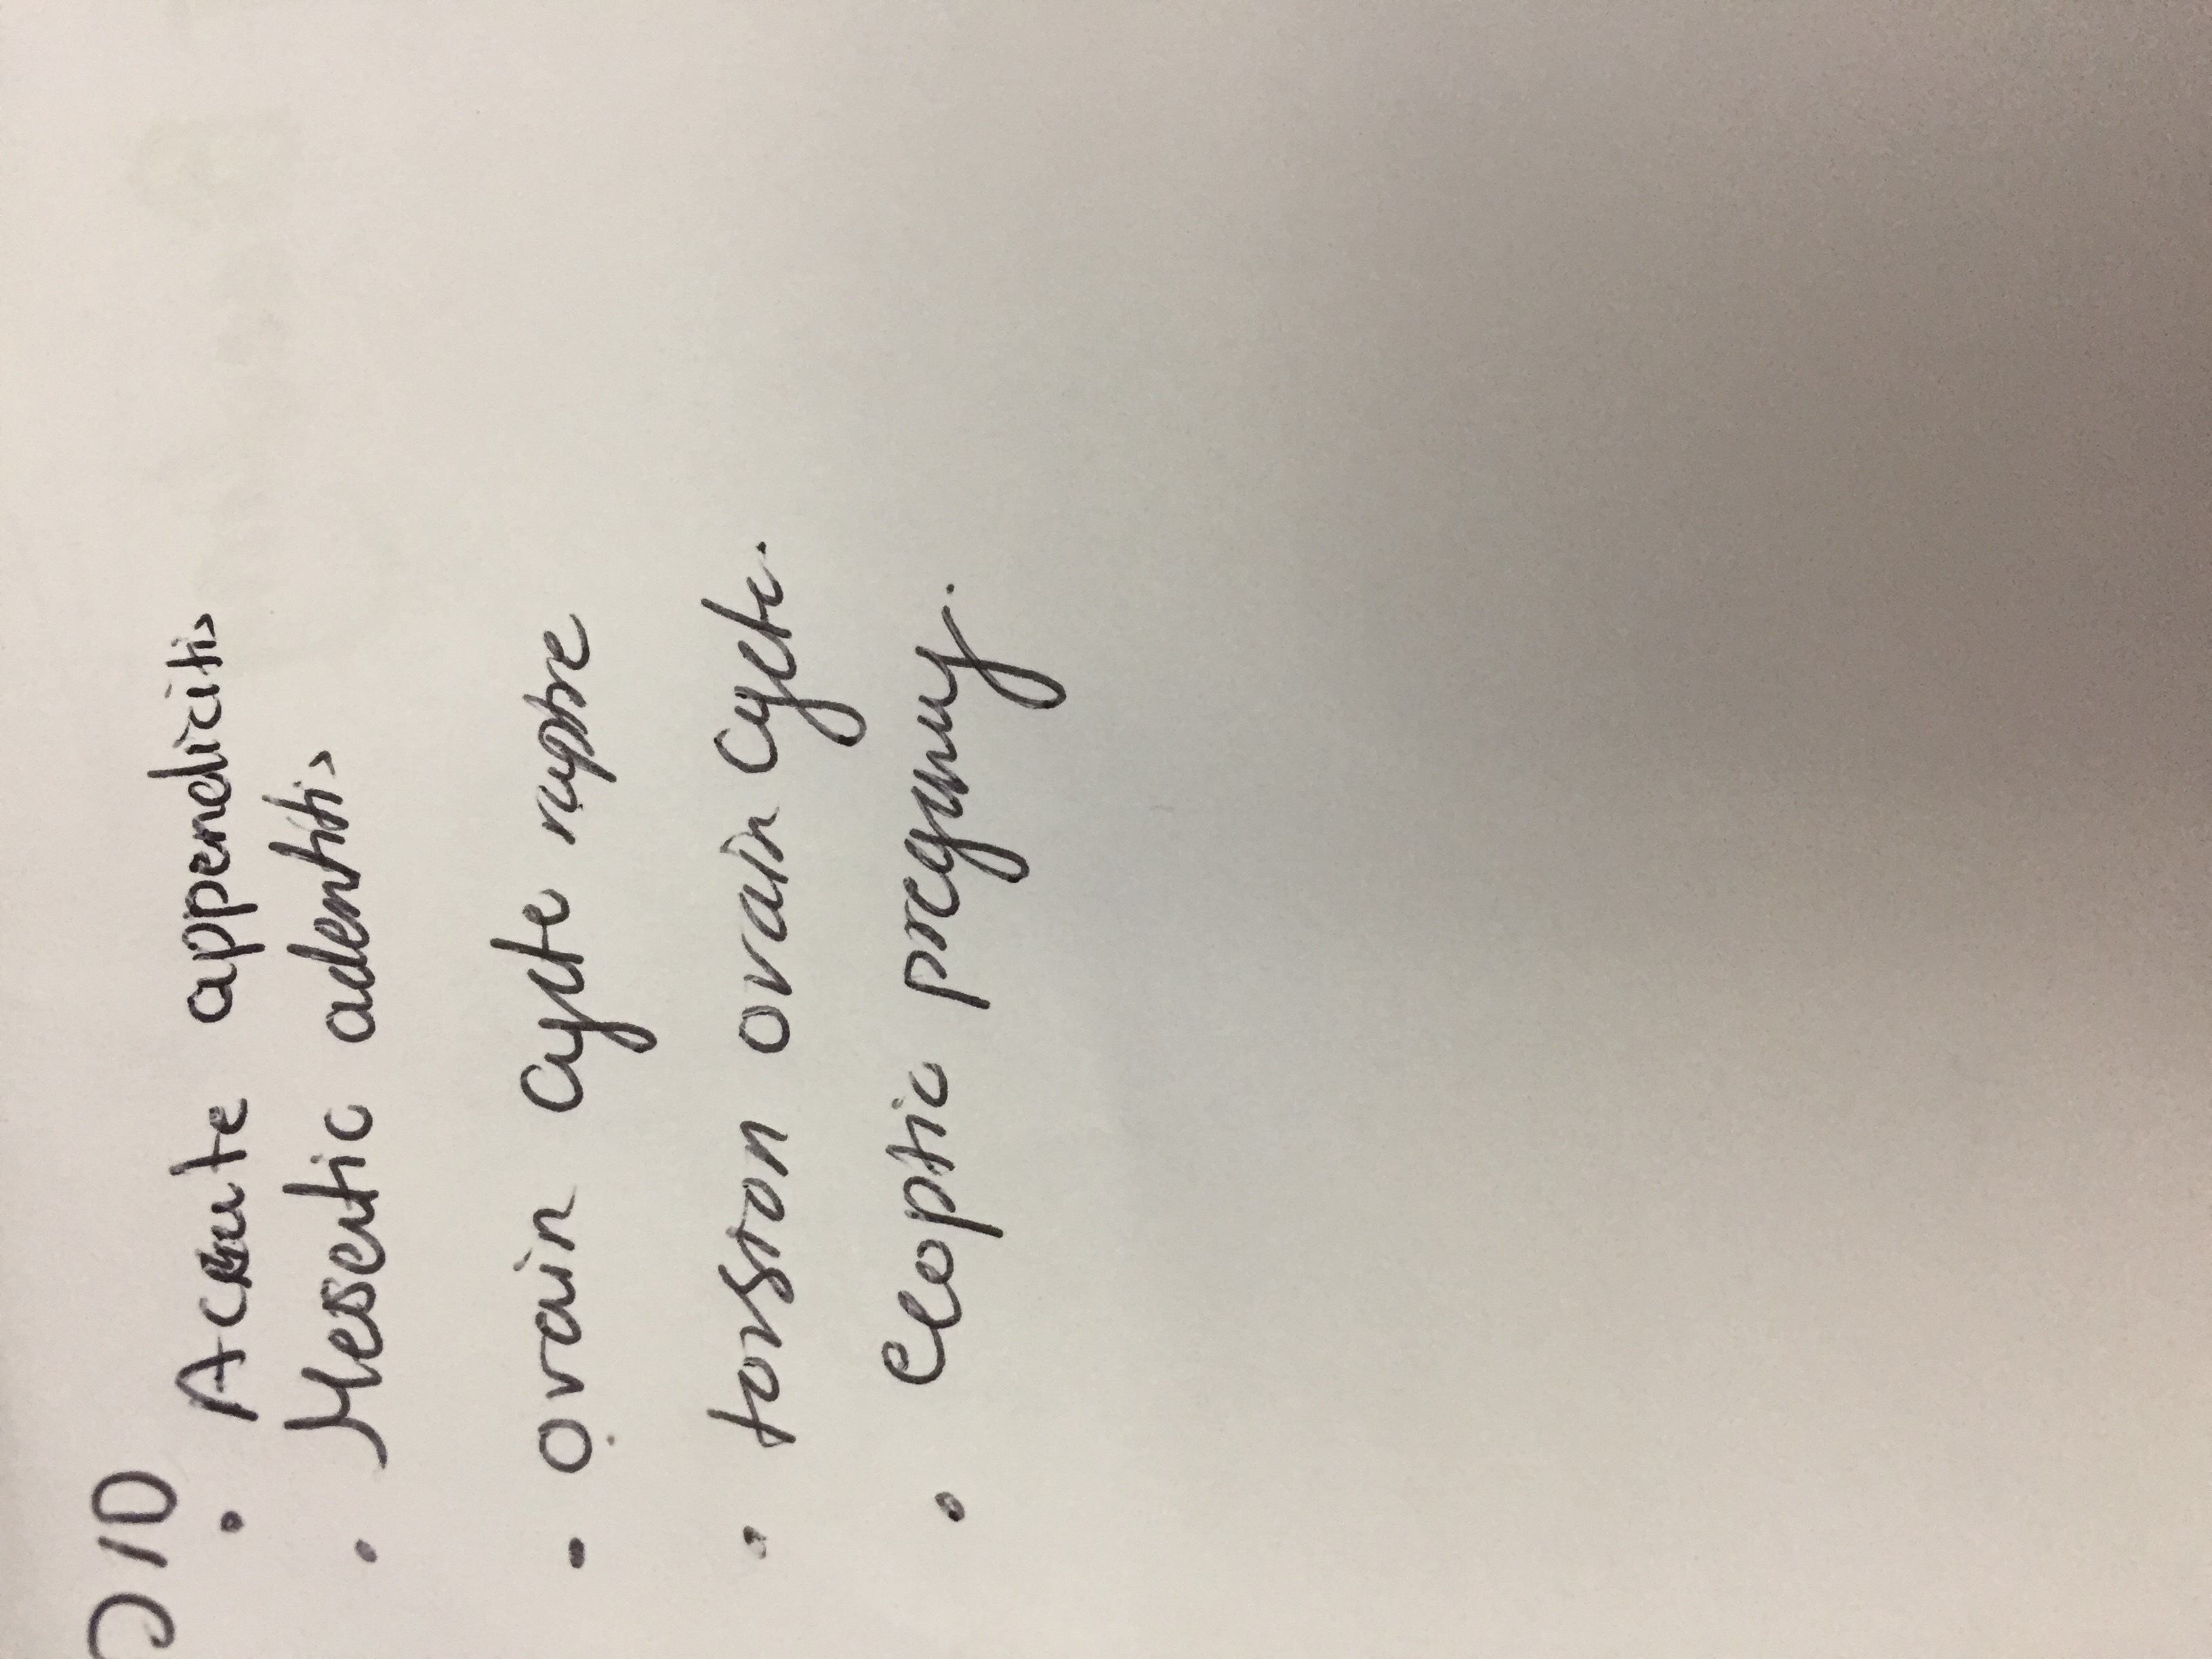 D/D
• Accute appendicitis
• Mesentic adentitis
• ovain cyste rupture
• torsion ovain cyste.
• Eloptic pregnancy.